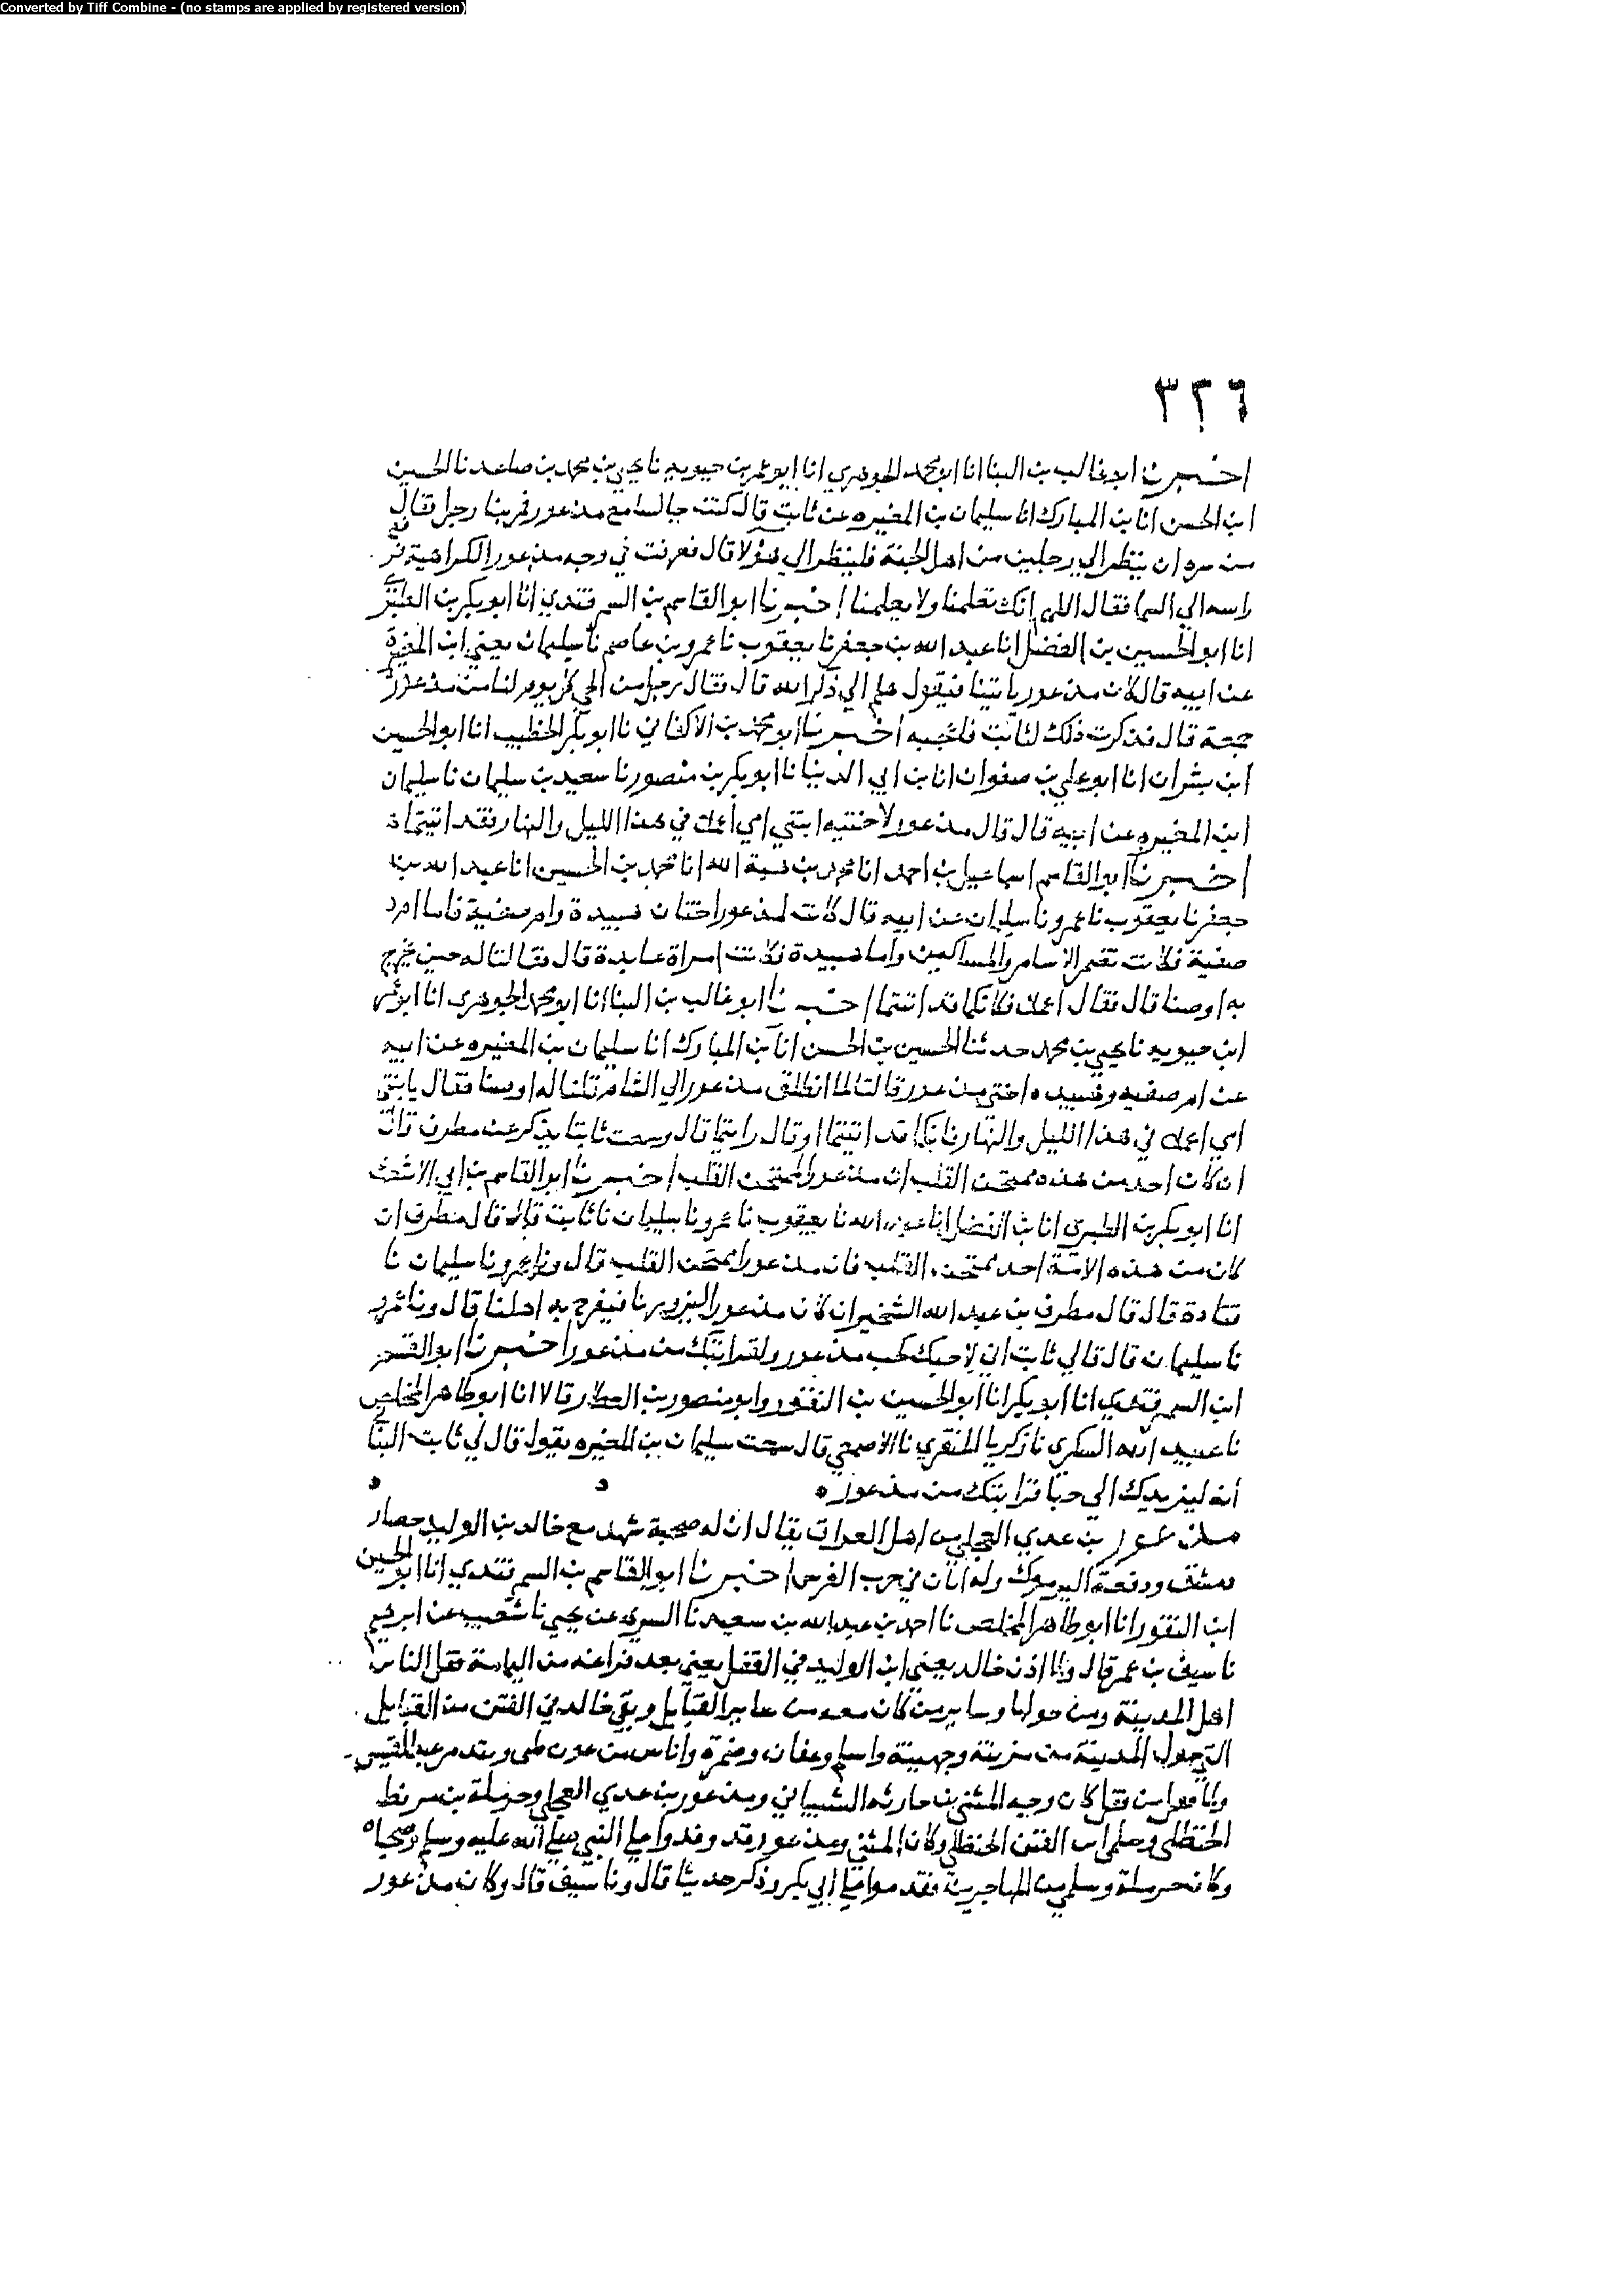 Converted by Tiff Combine - (no stamps are applied by registered version)
٣٢٦
اخبرنا ابو غالب بن البنا انا ابو محمد الجوهري انا ابو عمر بن حيويه نا يحيى بن محمد بن صاعد نا الحسين
ابن الحسن انا بن المبارك انا سليمان بن المغيره عن ثابت قال كنت جالسا مع مذعور فمر بنا رجل فقال
من سره ان ينظر الى رجلين من اهل الجنة فلينظر الى هولا قال فعرفت في وجه مذعور الكراهية فرفع
راسه الى السما فقال اللهم انك تعلمنا ولا يعلمنا اخبرنا ابو القاسم بن السمرقندي انا ابو بكر بن الطبري
انا ابو الحسين بن الفضل انا عبد الله بن جعفر نا يعقوب نا عمرو بن عاصم نا سليمان يعني ابن المغيرة
عن ابيه قال كان مذعور ياتينا فيقول هلم الى ذكر الله قال فقال رجل من الحي كل يوم لنا من مذعور
جمعة قال فذكرت ذلك لثابت فاعجبه اخبرنا ابو محمد بن الاكفاني نا ابو بكر الخطيب انا ابو الحسين
ابن بشران انا ابو علي بن صفوان انا بن ابي الدنيا نا ابو بكر بن منصور نا سعيد بن سليمان نا سليمان
ابن المغيره عن ابيه قال قال مذعور لاختيه ابنتي امي اعملا في هذا الليل والنهار فقد اتيتما ه
اخبرنا ابو القاسم اسماعيل بن احمد انا محمد بن هبة الله انا محمد بن الحسين انا عبد الله بن
جعفر نا يعقوب نا عمرو نا سليمان عن ابيه قال كانت لمذعور اختان وام صفية فاما ام
صفية فكانت تغمر الايتام والمساكين واما فكانت امراة عابدة قال فقالتا له حين يخرج
به اوصنا قال فقال اعملا فكانكما قد اتيتما اخبرنا ابو غالب بن البنا انا ابو محمد الجوهري انا ابو عمر
ابن حيويه نا يحيى بن محمد حدثنا الحسين بن الحسن انا بن المبارك انا سليمان بن المغيره عن ابيه
عن ام صفيه اختي مذعور قالتا لما انطلق مذعور الى الشام قلنا له اوصنا فقال يا بنتي
امي اعملا في هذا الليل والنهار قد اتيتما او قال رايتما قال وسمعت ثابتا يذكر عن مطرف قال
ان كان احد من هذه ممتحن القلب ان مذعورا لممتحن القلب اخبرنا ابو القاسم بن ابي الاشعث
انا ابو بكر بن الطبري انا بن الفضل انا عبد الله نا يعقوب نا عمرو نا سليمان نا ثابت قال قال مطرف ان
كان من هذه الامة احد ممتحن القلب فان مذعورا ممتحن القلب قال ونا عمرو نا سليمان نا
قتادة قال قال مطرف بن عبد الله الشخير ان كان مذعور ليزورنا فيفرح به اهلنا قال ونا عمرو
نا سليمان قال قال لي ثابت اني لاحبك لحب مذعور ولقرابتك من مذعور اخبرنا ابو القسم
ابن السمرقندي انا ابو بكر انا ابو الحسين بن النقور وابو منصور بن العطار قالا انا ابو طاهر المخلص
نا عبيد الله السكري نا زكريا المنقري نا الاصمعي قال سمعت سليمان بن المغيره يقول قال لي ثابت البناني
انه ليزيدك الي حبا قرابتك من مذعور ه
مذعور بن عدي العجلي من اهل العراق يقال ان له صحبة شهد مع خالد بن الوليد حصار
دمشق ووقعة اليرموك وله اثار في حرب الفرس اخبرنا ابو القاسم بن السمرقندي انا ابو الحسين
ابن النقور انا ابو طاهر المخلص نا احمد بن عبد الله بن سعيد نا السري عن يحيى نا شعيب عن ابرهيم
نا سيف بن عمر قال ولما اذن خالد يعني ابن الوليد في القفل يعني بعد فراغه من اليمامة قفل الناس
اهل المدينة ومن حولها وساير من كان معه من القبايل وبقي خالد في الفين من القبايل
التي حول المدينة من مزينة وجهينة واسلم وغفار وضمرة واناس من غوث طي عبد القيس
ولما قفل من قفل كان وجه المثنى بن حارثه الشيباني ومذعور بن عدي العجلي وحرملة بن مريط
الحنظلي وسلمى بن القين الحنظلي وكان المثنى ومذعور قد وفدوا على النبي صلى الله عليه وسلم وصحباه
وكان حرملة وسلمى من المهاجرين فقدموا على ابي بكر وذكر حديثا قال ونا سيف قال وكان مذعور